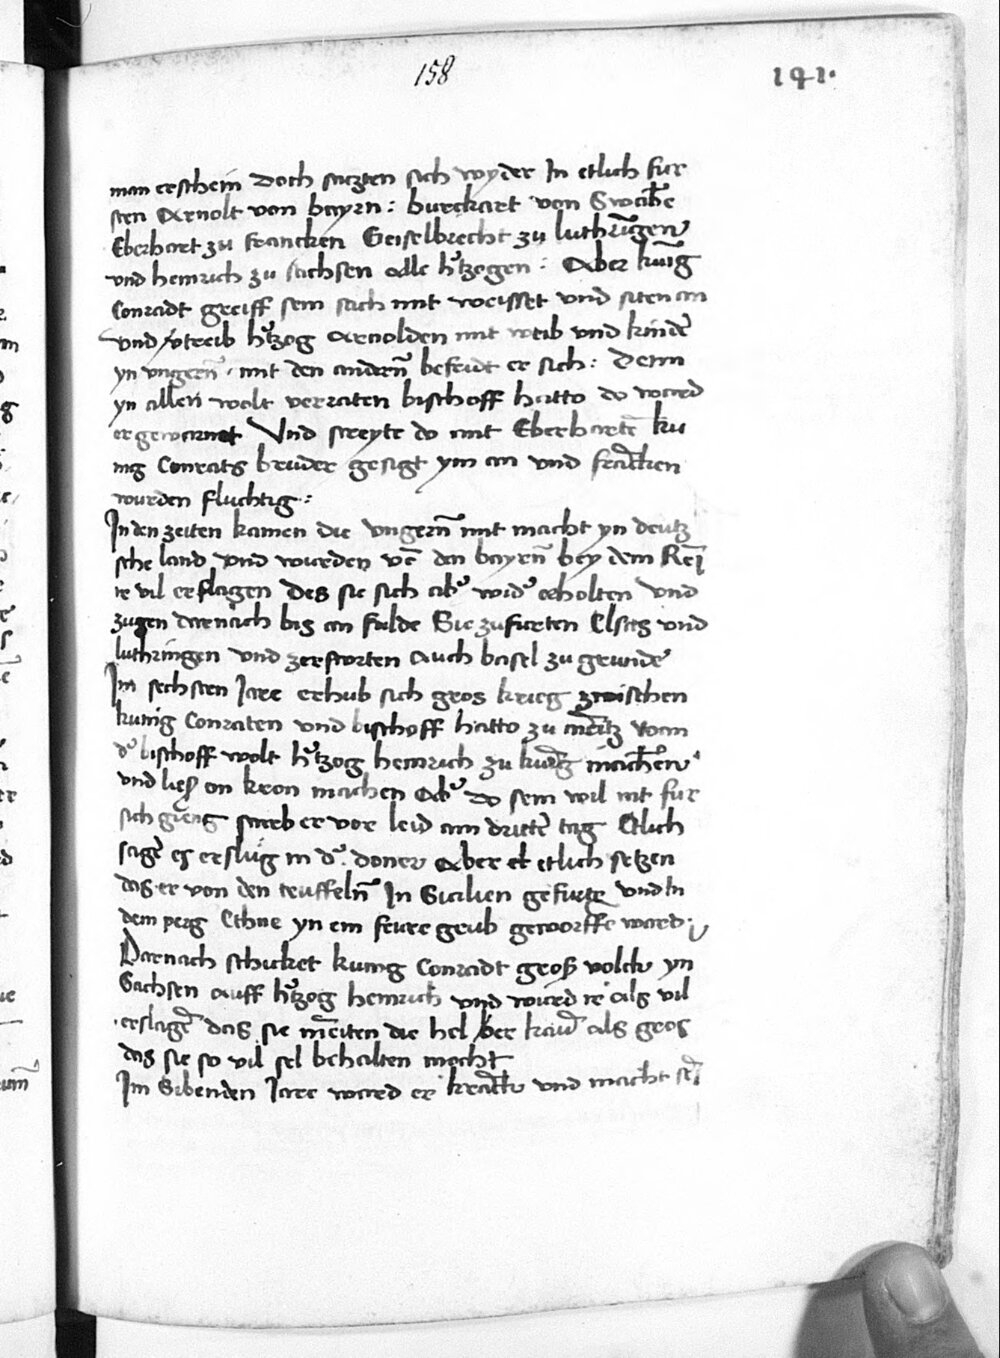 158
141.
man erschein doch saczten sich wyder In etlich fur
sten Arnolt von bayrn: burckart von Swabē
Eberhart zu francken Geiselbrecht zu luthringen
und heinrich zu sachsen alle htzogen: Aber kunig
Conradt greiff sein sach mit weisset und siten an
und vtreib htzog Arnolden mit weib und kinder
yn ungern̄ mit den andern̄ befridt er sich: Denn
yn allen wolt verraten bischoff hatto do ward
er gewarnet Und streyte do mit Eberhartē ku
nig Conrats bruder gesigt ym an und francken
wurden fluchtig:
In den zeiten kamen die ungern̄ mit macht yn deutz
sche land und wurden vō den bayrn̄ bey dem Rein
re vil erslagen Des sie sich ab wid erholten und
zugen darnach bis an fulde Sie zufurten Elsas und
luthringen und zerstorten auch basel zu grunde
Im sechsten Jare erhub sich gros krieg zwischen
kunig Conraten und bischoff hatto zu mentz Wann
d bischoff wolt htzog heinrich zu kunig machen
und lies on kron machen Ab do sein wil nit fur
sich gieng starb er vor leid am drittē tag Etlich
sagē es erslug in d doner Aber et etlich setzen
das er von den teuffeln̄ In Sicilien gefurte und In
dem perg Ethne yn ein feure grub geworffe ward
Darnach schicket kunig Conradt groß volck yn
Sachsen auff htzog heinrich und ward re als vil
erslagē das sie meiten die hel ker kaum als gros
das sie so vil sel behalten mocht
Im Sibenden Jare ward er kranck und macht sei